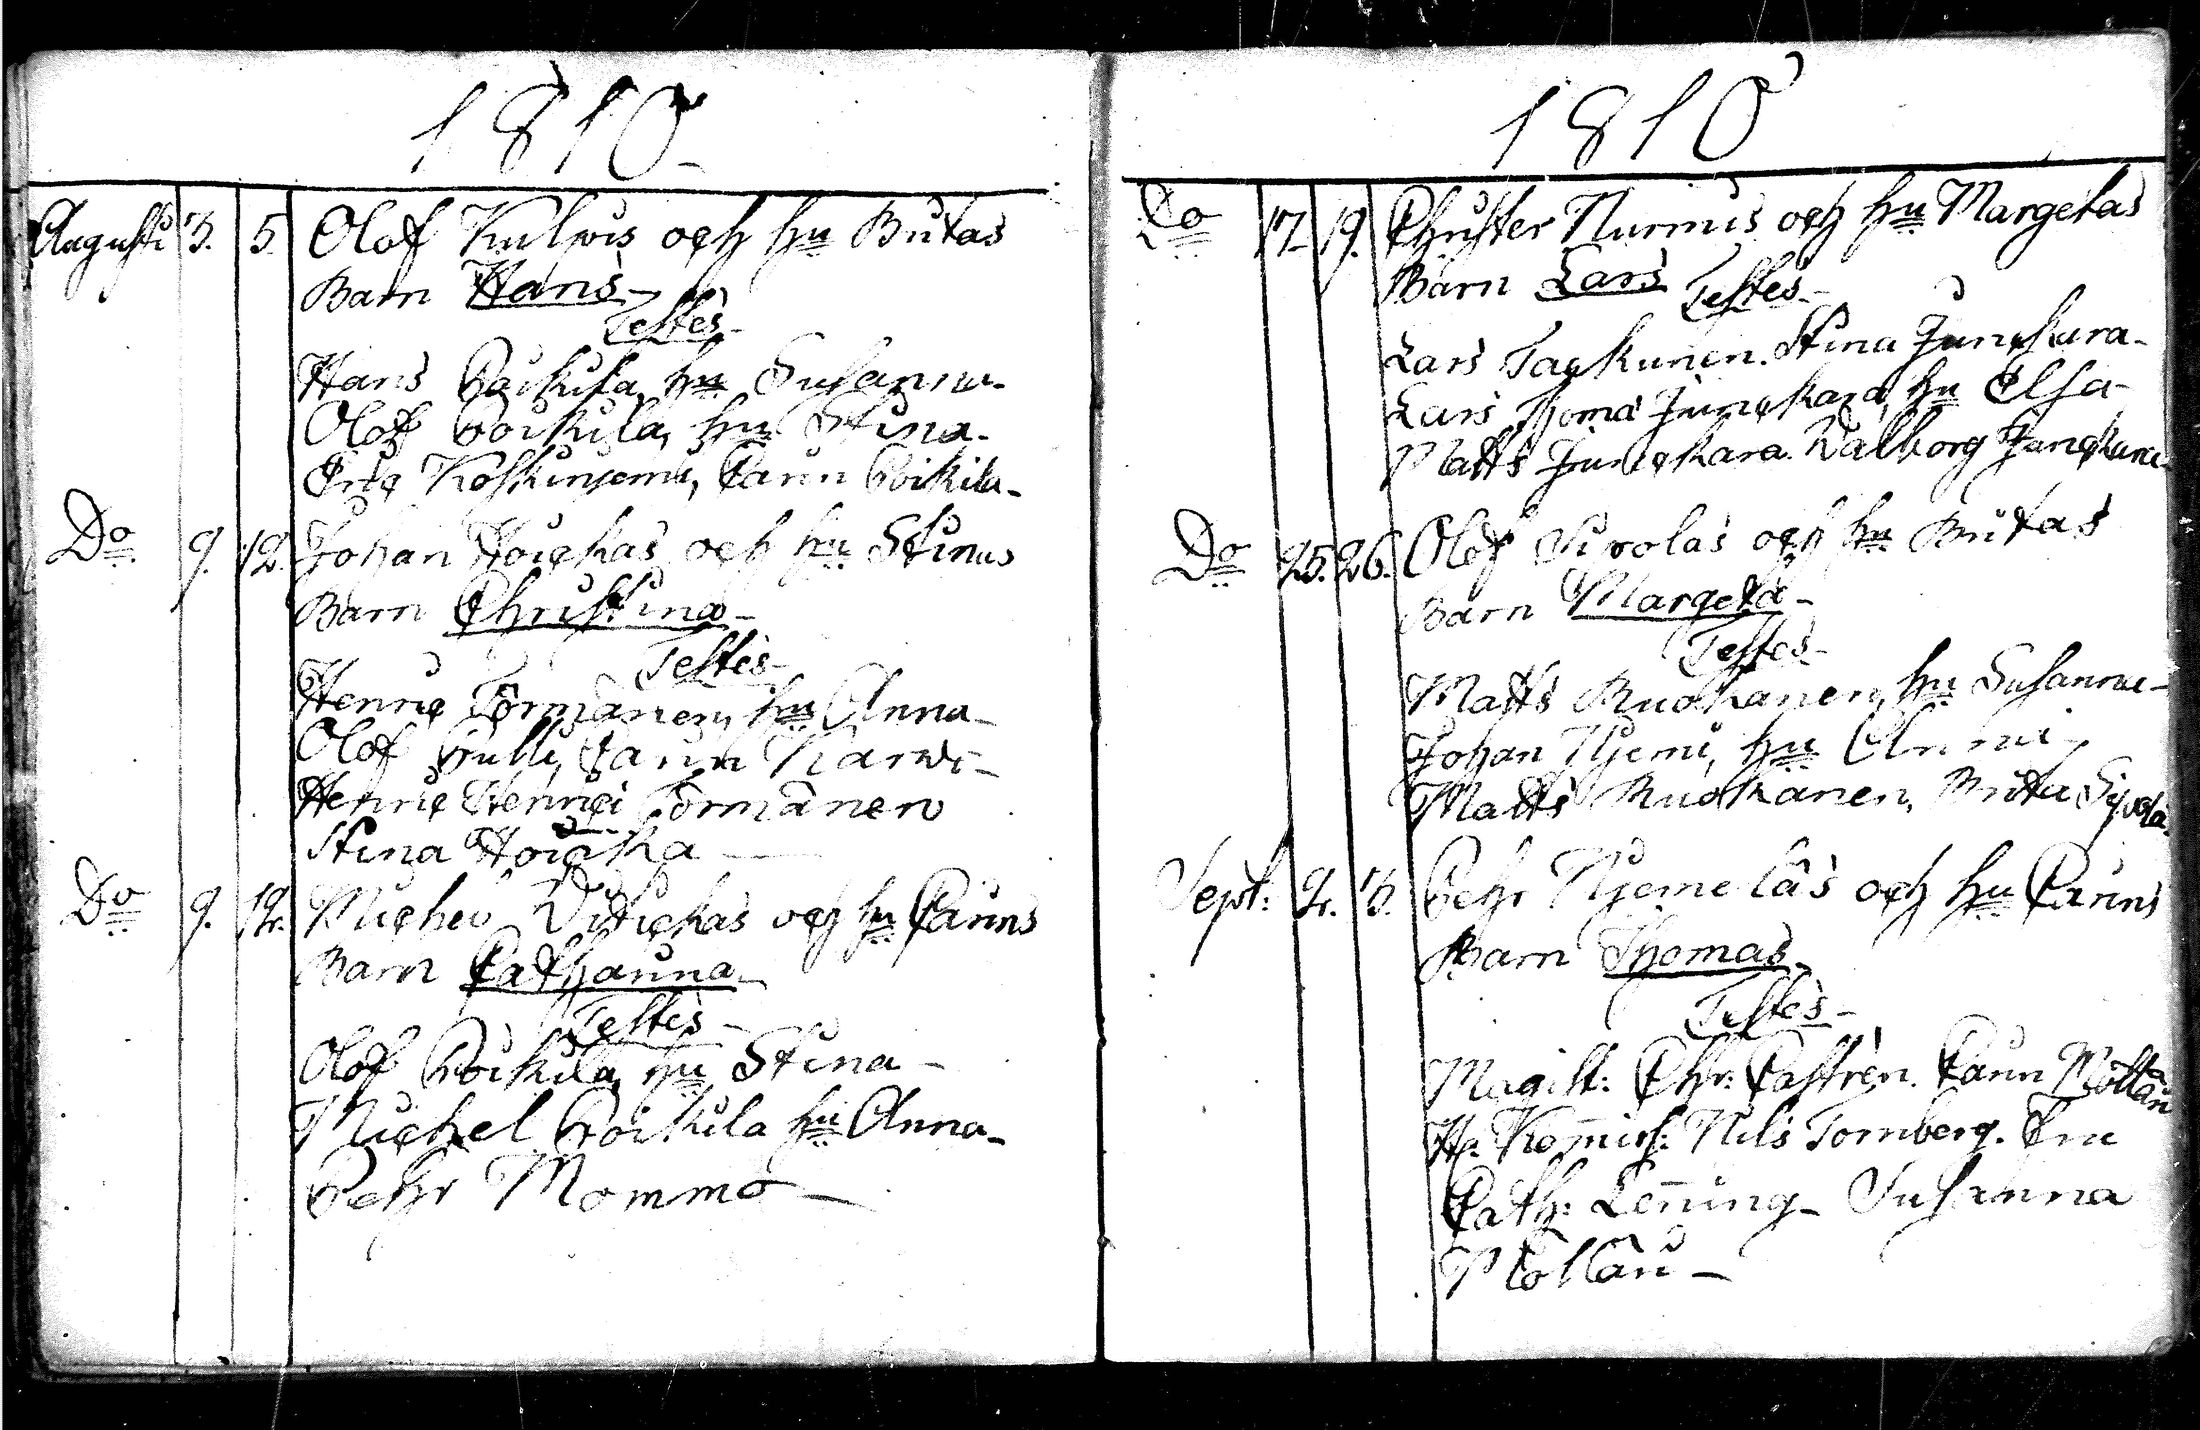 1810
Augusti 3. 5. Olof Kulpis och hu Britas
Barn Hans
Testes
Hans Poikila, hu Susanna
Olof Poikila, hu Stina
Eric Koskinjemi, Carin Poikila
Do 9. 12. Johan Houckas och hu Stinas
Barn Christina
Testes
Henric Törmänen, hu Anna
Olof Pulli, Carin Karvi
Henric Henrici Törmänen
Stina Houcka
Do 9. 12. Michel och hu Carins
Barn Catharina
Testes
Olof Poikila, hu Stina
Michel Poikila hu Anna
Pehr Mommo
1810
Do 17. 19. Christer Nurmis och hu Margetas
Barn Lars
Testes
Lars Tackunen. Stina Junckara
Lars Thomæ Junckara, hu Elsa
Matts Junckara. Walborg Junckara
Do 25. 26. Olof Sivolas och hu Britas
Barn Margeta
Testes
Matts Ruokanen, hu Susanna
Johan Njemi, hu Anna
Matts Ruokanen, Brita Sivola
Sept: 2. 3. Pehr Njemeläs och hu Carins
Barn Thomas
Testes
Magist: Chr: Castrèn. Carin Mollari
H. Komiss: Nils Tornberg. Fru
Cath: Lening Susanna
Mollari